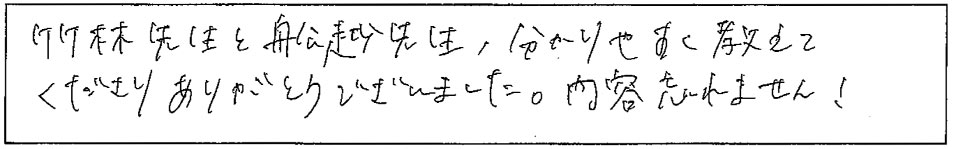 竹林先生と船越先生、分かりやすく教えて
くださりありがとうございました。内容忘れません!